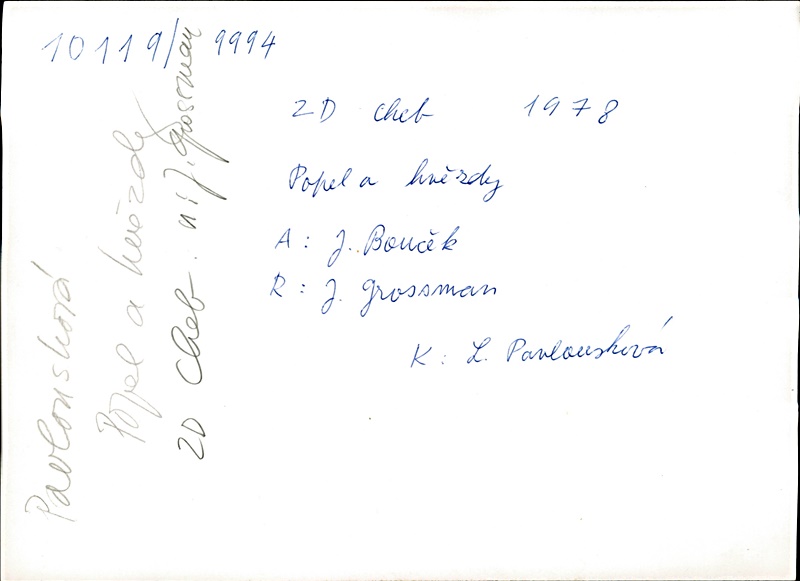 10119/9994
ZD Cheb 1978
Popel a hvězdy
A: J. Bouček
R: J. Grossman
K: L. Pavlousková
Pavlousková
Popel a hvězdy
ZD Cheb. J. Grossman